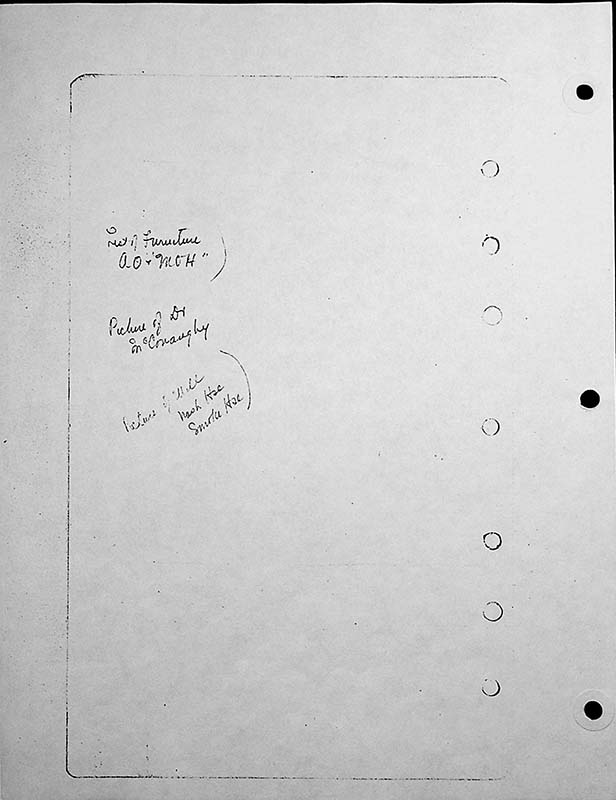 List of Furniture
A.O + "M.O.H"
Picture of Dr
McConaughy
Picture of Mill
Wash Hse
Smoke Hse